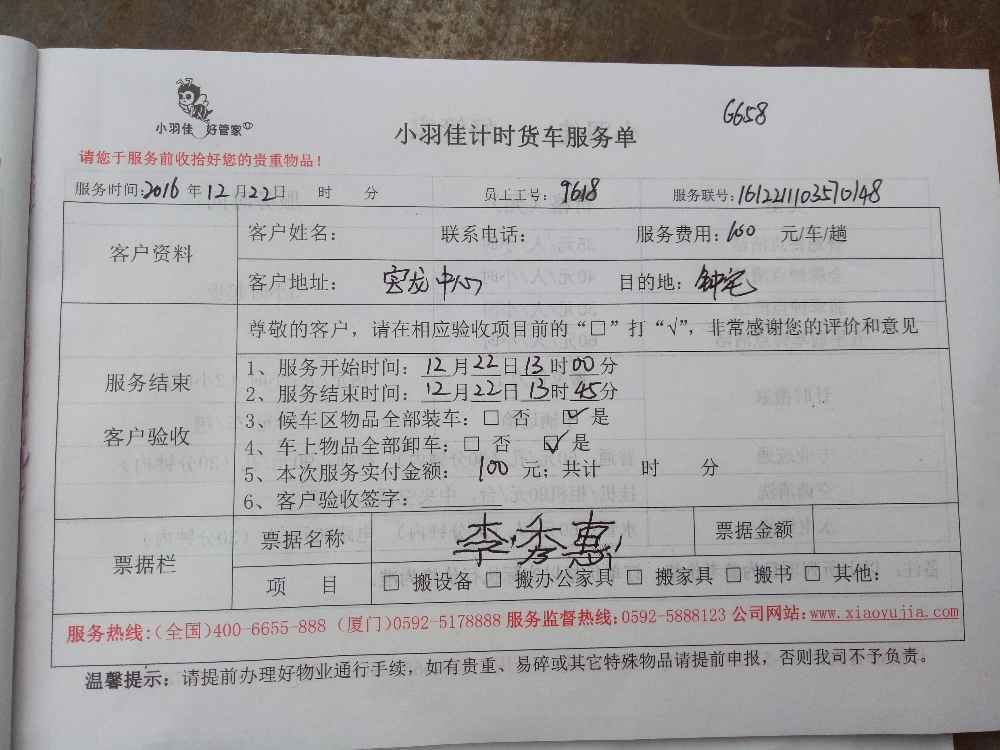 G658
小羽佳 好管家
小羽佳计时货车服务单
请您于服务前收拾好您的贵重物品！
服务时间:2016 年 12 月 22 日 时 分 员工工号: 9618 服务联号: 1612221103570148
客户资料
客户姓名: 联系电话: 服务费用: 100 元/车/趟
客户地址: 宝龙中心 目的地: 钟宅
服务结束
客户验收
尊敬的客户，请在相应验收项目前的“□”打“√”，非常感谢您的评价和意见
1、服务开始时间: 12 月 22 日 13 时 00 分
2、服务结束时间: 12 月 22 日 13 时 45 分
3、候车区物品全部装车: □ 否 ☑ 是
4、车上物品全部卸车: □ 否 ☑ 是
5、本次服务实付金额: 100 元；共计 时 分
6、客户验收签字:
票据栏
票据名称 李秀惠 票据金额
项 目 □ 搬设备 □ 搬办公家具 □ 搬家具 □ 搬书 □ 其他:
服务热线:(全国)400-6655-888 (厦门)0592-5178888 服务监督热线:0592-5888123 公司网站:www.xiaoyujia.com
温馨提示: 请提前办理好物业通行手续，如有贵重、易碎或其它特殊物品请提前申报，否则我司不予负责。